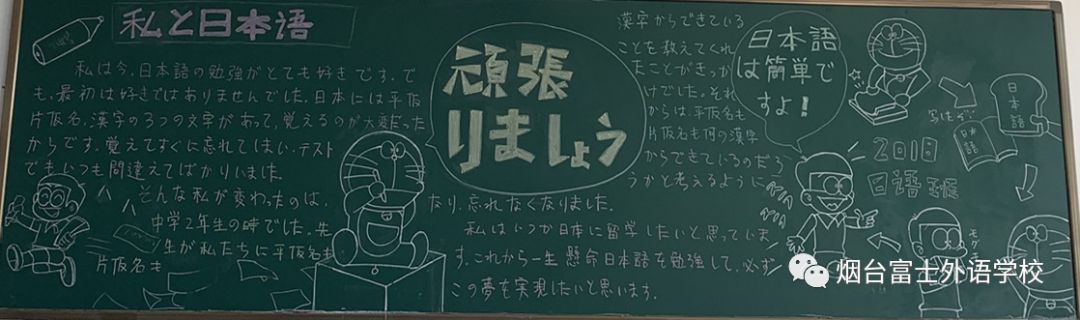 私と日本语
私は今、日本語の勉強がとても好きです。で
も、最初は好きではありませんでした。日本には平仮
片仮名、漢字の3つの文字があって、覚えるのが大変だった
からです。覚えてすぐに忘れてしまい、テスト
でもいつも間違えてばかりいました。
そんな私が変わったのは、
中学2年生の時でした。先
生が私たちに平仮名も
片仮名も
頑張
りましょう
漢字からできている
ことを教えてくれ
たことがきっか
けでした。それ
からは、平仮名も
片仮名も何の漢字
からできているのだろ
うかと考えるように
なり、忘れなくなりました。
私はいつか日本に留学したいと思っていま
す。これから一生懸命日本語を勉強して、必ず
この夢を実現したいと思います。
日本語
は簡単で
すよ!
日本語
日本語
2018
日语班
モグ
烟台富士外语学校